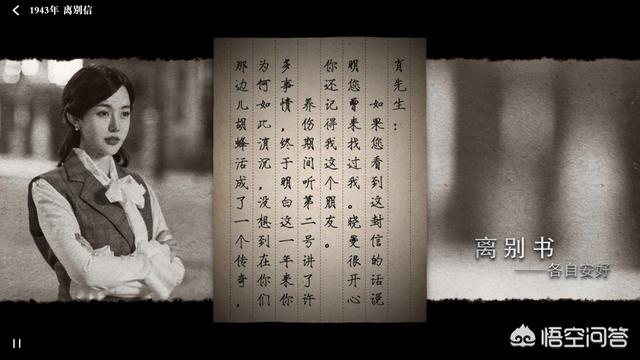 1943年 离别信
肖先生：
如果您看到这封信的话说
明您曾来找过我。晓曼很开心
你还记得我这个朋友。
养伤期间听第二号讲了许
多事情，终于明白这一年来你
为何如此消沉，没想到在你们
那边儿胡蜂活成了一个传奇，
离别书
——各自安好
悟空问答